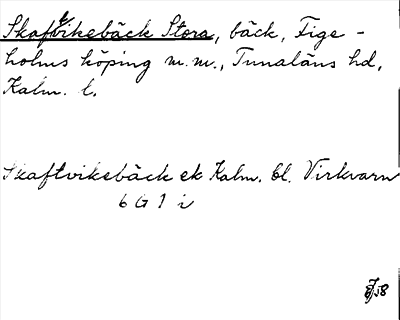 Skaftvikebäck Stora, bäck, Fige-
holms köping m.m., Tunaläns hd,
Kalm. l.
Skaftvikebäck ek Kalm. bl. Virkvarn
6 G 1 i